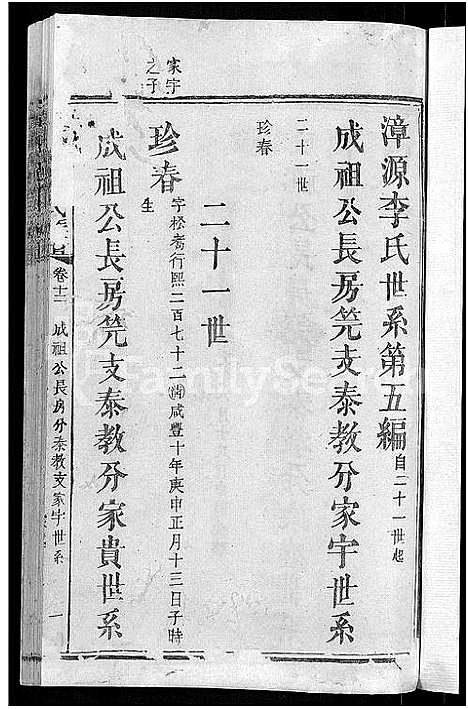 漳源李氏世系第五編 自二十一世起
成祖公長房筦支泰教分家宇世系
二十一世
珍春
二十一世
家宇之子
珍春 字松喬行熙二百七十二 清 咸豐十年庚申正月十三日子時生
成祖公長房筦支泰教分家貴世系
卷十二 成祖公長房分泰教支家宇世系 一
FamilySearch